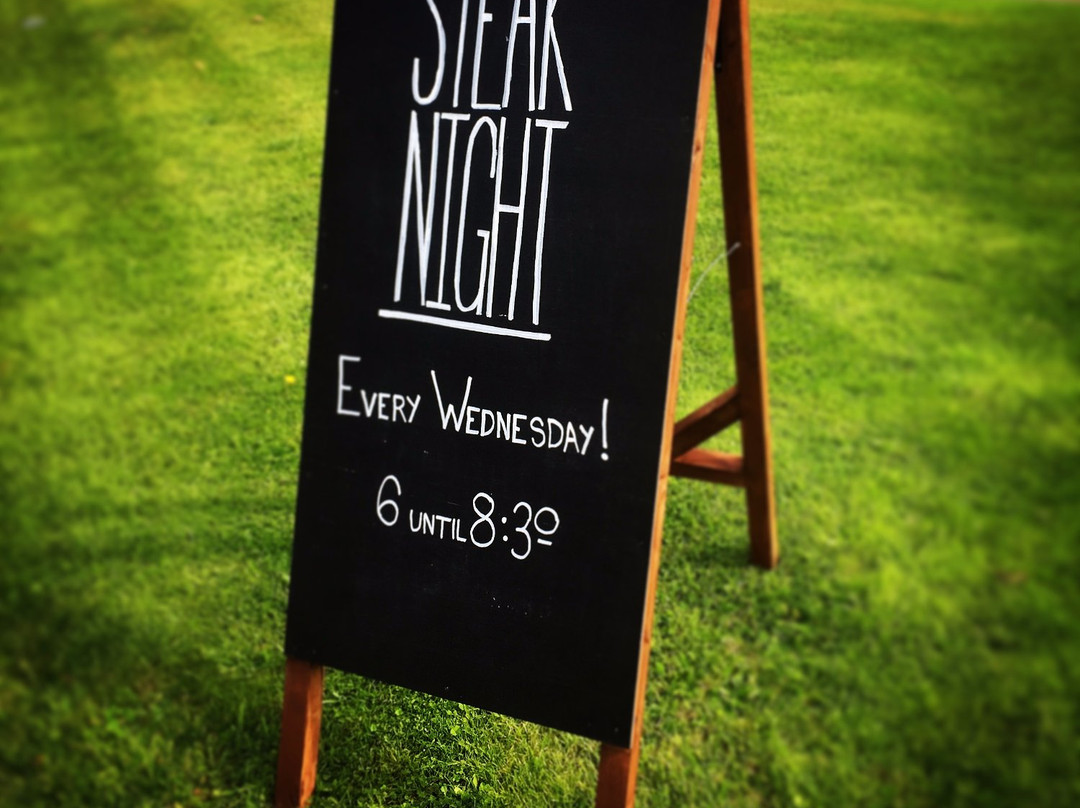 STEAK
NIGHT
EVERY WEDNESDAY!
6 UNTIL 8:30